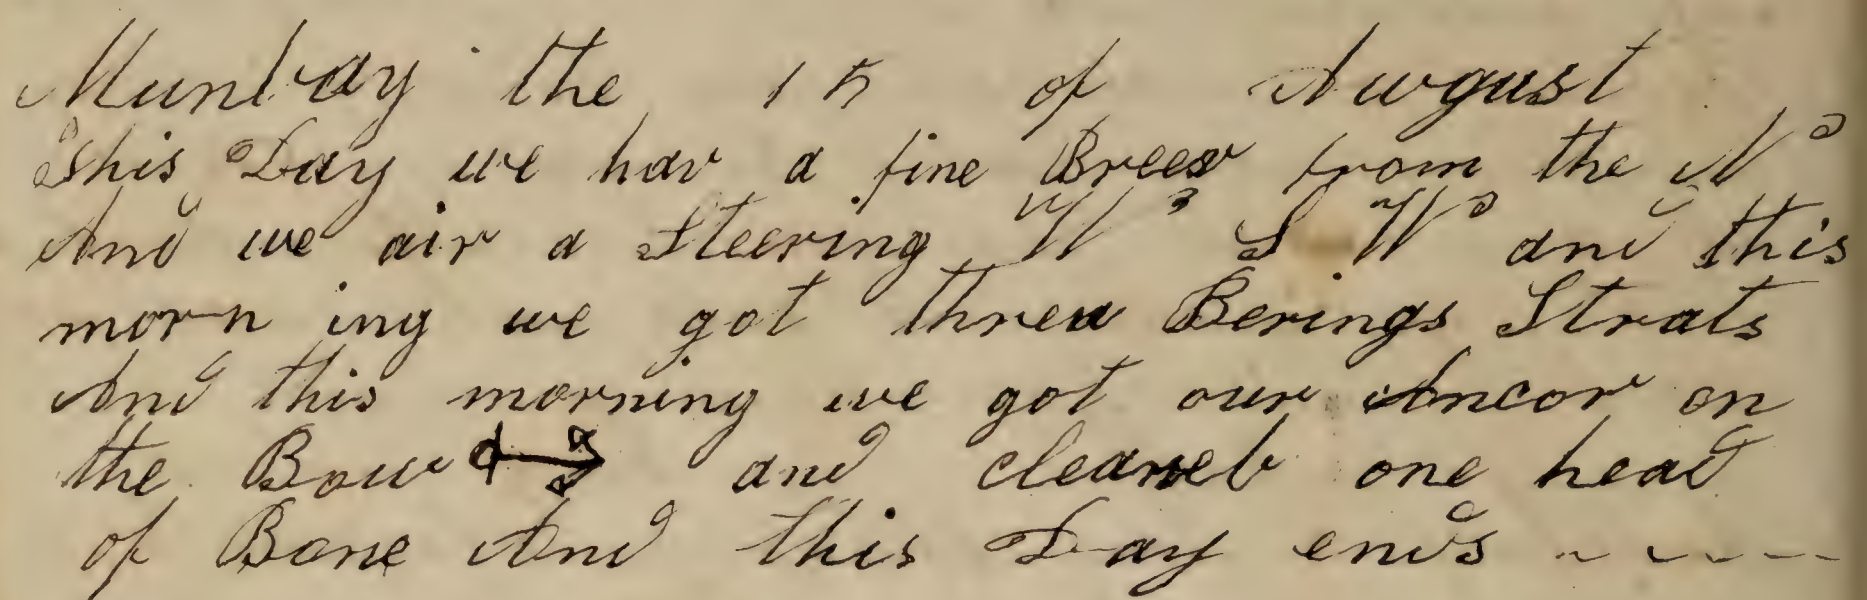 Munbay the 15 of August
this Day we hav a fine Breex from the N
And we air a Steering W S W and this
morn ing we got threu Berings Strats
And this morning we got our Ancor on
the Bow and cleaneb one head
of Bone And this Day ends - - - - -